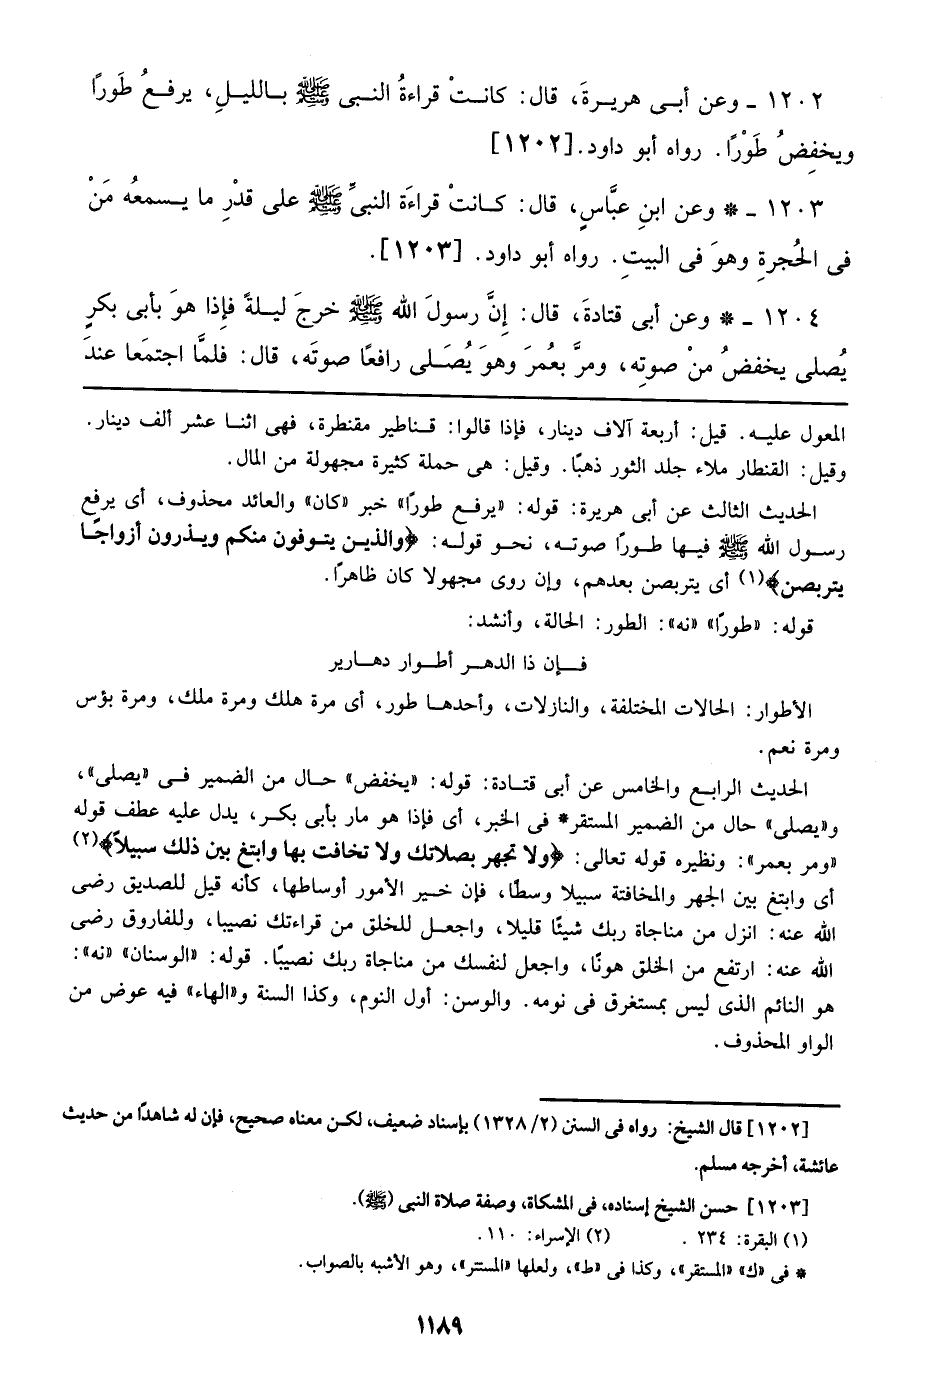 ١٢٠٢ ـ وعن أبى هريرةَ، قال: كانتْ قراءةُ النبى ﷺ بالليلِ، يرفعُ طَورًا
ويخفِضُ طَوْرًا. رواه أبو داود.[١٢٠٢]
١٢٠٣ ـ * وعن ابنِ عبَّاسٍ، قال: كانتْ قراءَة النبىِّ ﷺ على قدْرِ ما يسمعُه مَنْ
فى الحُجرةِ وهوَ فى البيتِ. رواه أبو داود. [١٢٠٣].
١٢٠٤ ـ * وعن أبى قتادةَ، قال: إنَّ رسولَ الله ﷺ خرجَ ليلةً فإذا هوَ بأبى بكرٍ
يُصلى يخفضُ منْ صوتِه، ومرَّ بعُمرَ وهوَ يُصَلى رافعًا صوتَه، قال: فلمَّا اجتمَعا عندَ
المعول عليه. قيل: أربعة آلاف دينار، فإذا قالوا: قناطير مقنطرة، فهى اثنا عشر ألف دينار.
وقيل: القنطار ملاء جلد الثور ذهبًا. وقيل: هى حملة كثيرة مجهولة من المال.
الحديث الثالث عن أبى هريرة: قوله: «يرفع طورًا» خبر «كان» والعائد محذوف، أى يرفع
رسول الله ﷺ فيها طورًا صوته، نحو قوله: ﴿والذين يتوفون منكم ويذرون أزواجًا
يتربصن﴾(١) أى يتربصن بعدهم، وإن روى مجهولا كان ظاهرًا.
قوله: «طورًا» «نه»: الطور: الحالة، وأنشد:
فإن ذا الدهر أطوار دهارير
الأطوار: الحالات المختلفة، والنازلات، وأحدها طور، أى مرة هلك ومرة ملك، ومرة بؤس
ومرة نعم.
الحديث الرابع والخامس عن أبى قتادة: قوله: «يخفض» حال من الضمير فى «يصلى»،
و«يصلى» حال من الضمير المستقر* فى الخبر، أى فإذا هو مار بأبى بكر، يدل عليه عطف قوله
«ومر بعمر»: ونظيره قوله تعالى: ﴿ولا تجهر بصلاتك ولا تخافت بها وابتغ بين ذلك سبيلاً﴾(٢)
أى وابتغ بين الجهر والمخافتة سبيلا وسطًا، فإن خير الأمور أوساطها، كأنه قيل للصديق رضى
الله عنه: انزل من مناجاة ربك شيئًا قليلا، واجعل للخلق من قراءتك نصيبا، وللفاروق رضى
الله عنه: ارتفع من الخلق هونًا، واجعل لنفسك من مناجاة ربك نصيبًا. قوله: «الوسنان» «نه»:
هو النائم الذى ليس بمستغرق فى نومه. والوسن: أول النوم، وكذا السنة و«الهاء» فيه عوض من
الواو المحذوف.
[١٢٠٢] قال الشيخ: رواه فى السنن (٢/ ١٣٢٨) بإسناد ضعيف، لكن معناه صحيح، فإن له شاهدًا من حديث
عائشة، أخرجه مسلم.
[١٢٠٣] حسن الشيخ إسناده، فى المشكاة، وصفة صلاة النبى (ﷺ).
(١) البقرة: ٢٣٤ . (٢) الإسراء: ١١٠.
* فى «ك» «المستقر»، وكذا فى «ط»، ولعلها «المستتر»، وهو الأشبه بالصواب.
١١٨٩